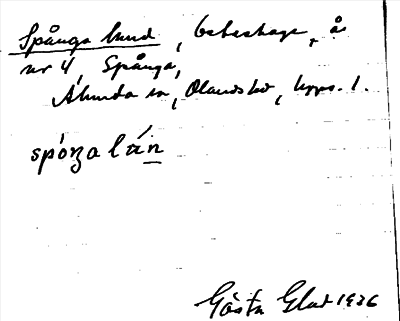 Spånga lund, bebestage, å
nr 4, Spånga,
Almunda sn, Olands hd, Upps. l.
spóŋa lán
Gösta Glad 1926